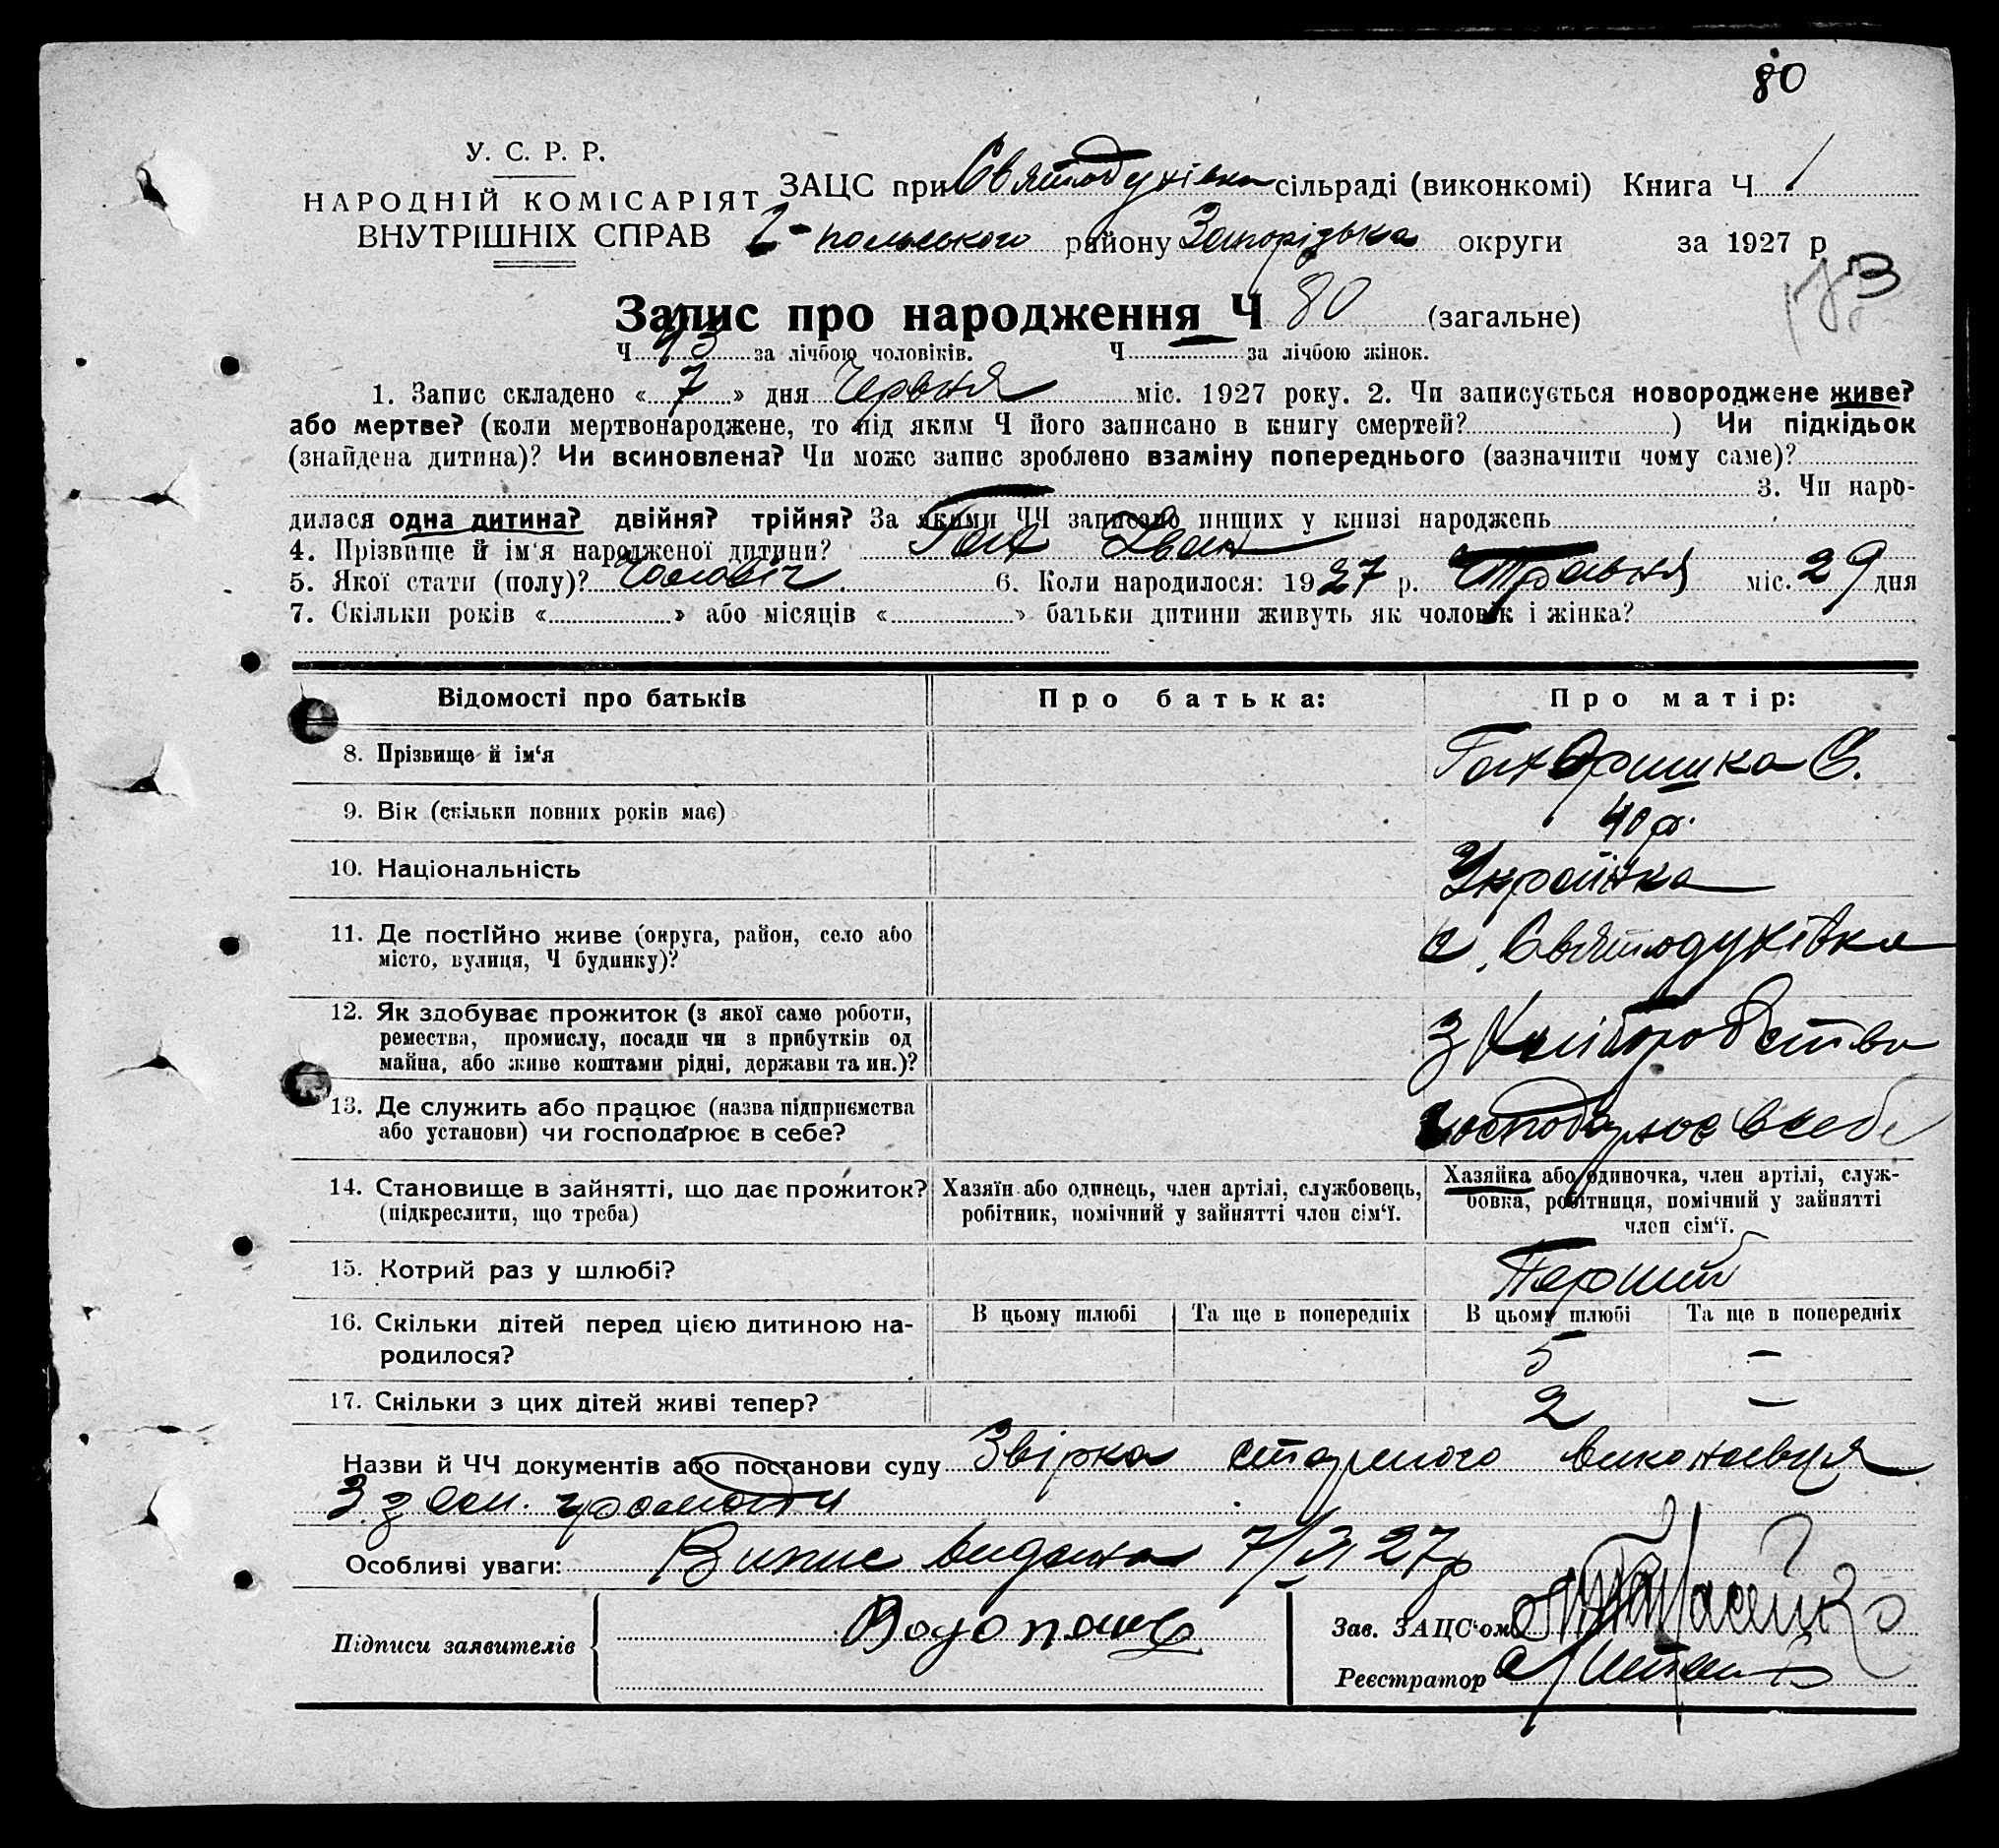 80
У. С. Р. Р.
НАРОДНІЙ КОМІСАРІЯТ
ВНУТРІШНІХ СПРАВ
ЗАЦС при Святодухівка сільраді (виконкомі) Книга Ч 1
польського району Запорізька округи за 1927 р
Запис про народження Ч 80 (загальне)
Ч 43 за лічбою чоловіків. Ч — за лічбою жінок.
1. Запис складено « 7 » дня Червня міс. 1927 року. 2. Чи записується новороджене живе?
або мертве? (коли мертвонароджене, то під яким Ч його записано в книгу смертей? ) Чи підкідьок
(знайдена дитина)? Чи всиновлена? Чи може запис зроблено взаміну попереднього (зазначити чому саме)?
3. Чи наро-
дилася одна дитина? двійня? трійня? За якими ЧЧ записано инщих у книзі народжень
4. Прізвище й ім'я народженої дитини? Гах Іван
5. Якої стати (полу)? Чоловіч 6. Коли народилося: 1927 р. Травня міс. 29 дня
7. Скільки років « » або місяців « » батьки дитини живуть як чоловік і жінка?
Відомості про батьків Про батька: Про матір:
8. Прізвище й ім'я Гах Оришка С.
9. Вік (скільки повних років має) 40 р.
10. Національність Українка
11. Де постійно живе (округа, район, село або
місто, вулиця, Ч будинку)? с. Святодухівка
12. Як здобуває прожиток (з якої саме роботи,
ремества, промислу, посади чи з прибутків од
майна, або живе коштами рідні, держави та ин.)? З Хліборобства
13. Де служить або працює (назва підприємства
або установи) чи господарює в себе? Господарює в себе
14. Становище в зайнятті, що дає прожиток?
(підкреслити, що треба)
Хазяїн або одинець, член артілі, службовець,
робітник, помічний у зайнятті член сім'ї.
Хазяйка або одиночка, член артілі, служ-
бовка, робітниця, помічний у зайнятті
член сім'ї.
15. Котрий раз у шлюбі? Перший
16. Скільки дітей перед цією дитиною на-
родилося?
В цьому шлюбі Та ще в попередніх В цьому шлюбі Та ще в попередніх
5 —
17. Скільки з цих дітей живі тепер? 2 —
Назви й ЧЧ документів або постанови суду Звірка виконавця
громади
Особливі уваги: Випис видана 7/VI 27р
Підписи заявителів
Зав. ЗАЦС'ом
Реєстратор